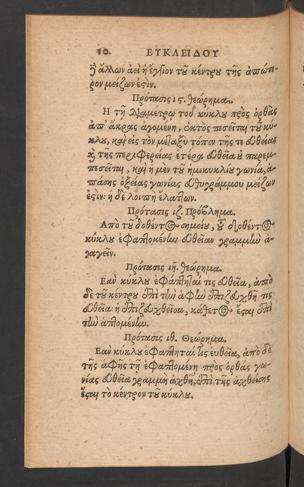 10. ΕΥΚΛΕΙΔΟΥ
ἢ ἄλλων ἀεὶ ἡ ἔγγιον τοῦ κέντρου τῆς ἀπώτε-
ρον μείζων ἐστίν.
Πρότασις ις. θεώρημα.
Η τῇ διαμέτρῳ τοῦ κύκλου πρὸς ὀρθὰς
ἀπ' ἄκρας ἀγομένη, ἐκτὸς πεσεῖται τοῦ κύ-
κλου, καὶ εἰς τὸν μεταξὺ τόπον τῆς τε εὐθείας
καὶ τῆς περιφερείας ἑτέρα εὐθεῖα οὐ παρεμ-
πεσεῖται, καὶ ἡ μὲν τοῦ ἡμικυκλίου γωνία, ἁ-
πάσης ὀξείας γωνίας εὐθυγράμμου μείζων
ἐστίν: ἡ δὲ λοιπὴ ἐλάττων.
Πρότασις ιζ. Πρόβλημα.
Απὸ τοῦ δοθέντος σημείου, τοῦ δοθέντος
κύκλου ἐφαπτομένην εὐθεῖαν γραμμὴν ἀ-
γαγεῖν.
Πρότασις ιη. θεώρημα.
Εαν κύκλου ἐφάπτηταί τις εὐθεῖα, ἀπὸ
δὲ τοῦ κέντρου ἐπὶ τὴν ἁφὴν ἐπιζευχθῇ τις
εὐθεῖα ἡ ἐπιζευχθεῖσα, κάθετος ἔσται ἐπὶ
τὴν ἁπτομένην.
Πρότασις ιθ. Θεώρημα.
Εαν κύκλου ἐφάπτηταί τις εὐθεῖα, ἀπὸ δὲ
τῆς ἁφῆς τῇ ἐφαπτομένῃ πρὸς ὀρθὰς γω-
νίας εὐθεῖα γραμμὴ ἀχθῇ, ἐπὶ τῆς ἀχθείσης
ἔσται τὸ κέντρον τοῦ κύκλου.